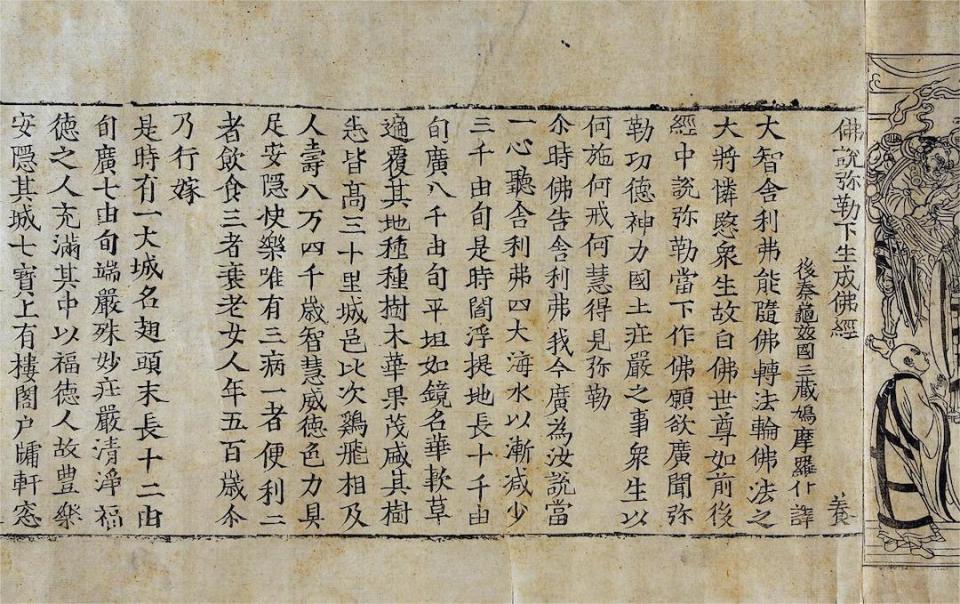 佛説弥勒下生成佛經
後秦龜兹國三藏鳩摩羅什譯　養
大智舍利弗能隨佛轉法輪佛法之
大將憐愍衆生故白佛世尊如前後
經中説弥勒當下作佛願欲廣聞弥
勒功德神力國土莊嚴之事衆生以
何施何戒何慧得見弥勒
尒時佛告舍利弗我今廣為汝説當
一心聽舍利弗四大海水以漸减少
三千由旬是時閻浮提地長十千由
旬廣八千由旬平坦如鏡名華軟草
遍覆其地種種樹木華果茂盛其樹
悉皆高三十里城邑比次鷄飛相及
人壽八万四千歲智慧威德色力具
足安隱快樂唯有三病一者便利二
者飲食三者衰老女人年五百歲尒
乃行嫁
是時有一大城名翅頭末長十二由
旬廣七由旬端嚴殊妙莊嚴清淨福
德之人充滿其中以福德人故豊樂
安隱其城七寶上有樓閣户牖軒窓